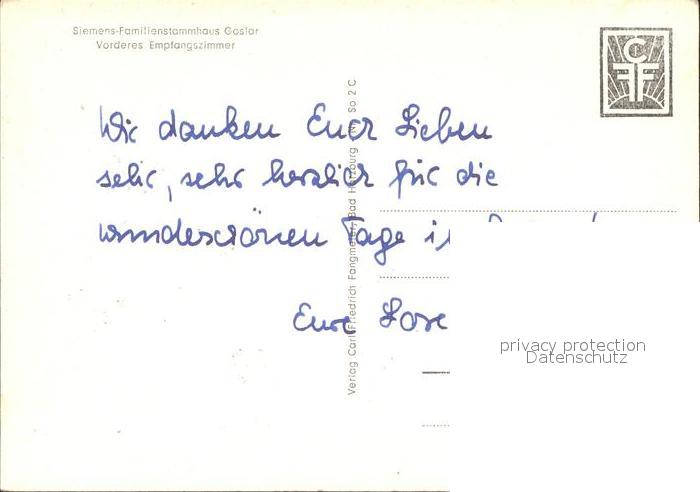 Siemens-Familienstammhaus Goslar
Vorderes Empfangszimmer
CFF
Wir danken Euch Lieben
sehr, sehr herzlich für die
wunderschönen Tage i
Eure
Verlag Carl Friedrich Fangmeier, Bad Harzburg Nr. So 2 C
privacy protection
Datenschutz